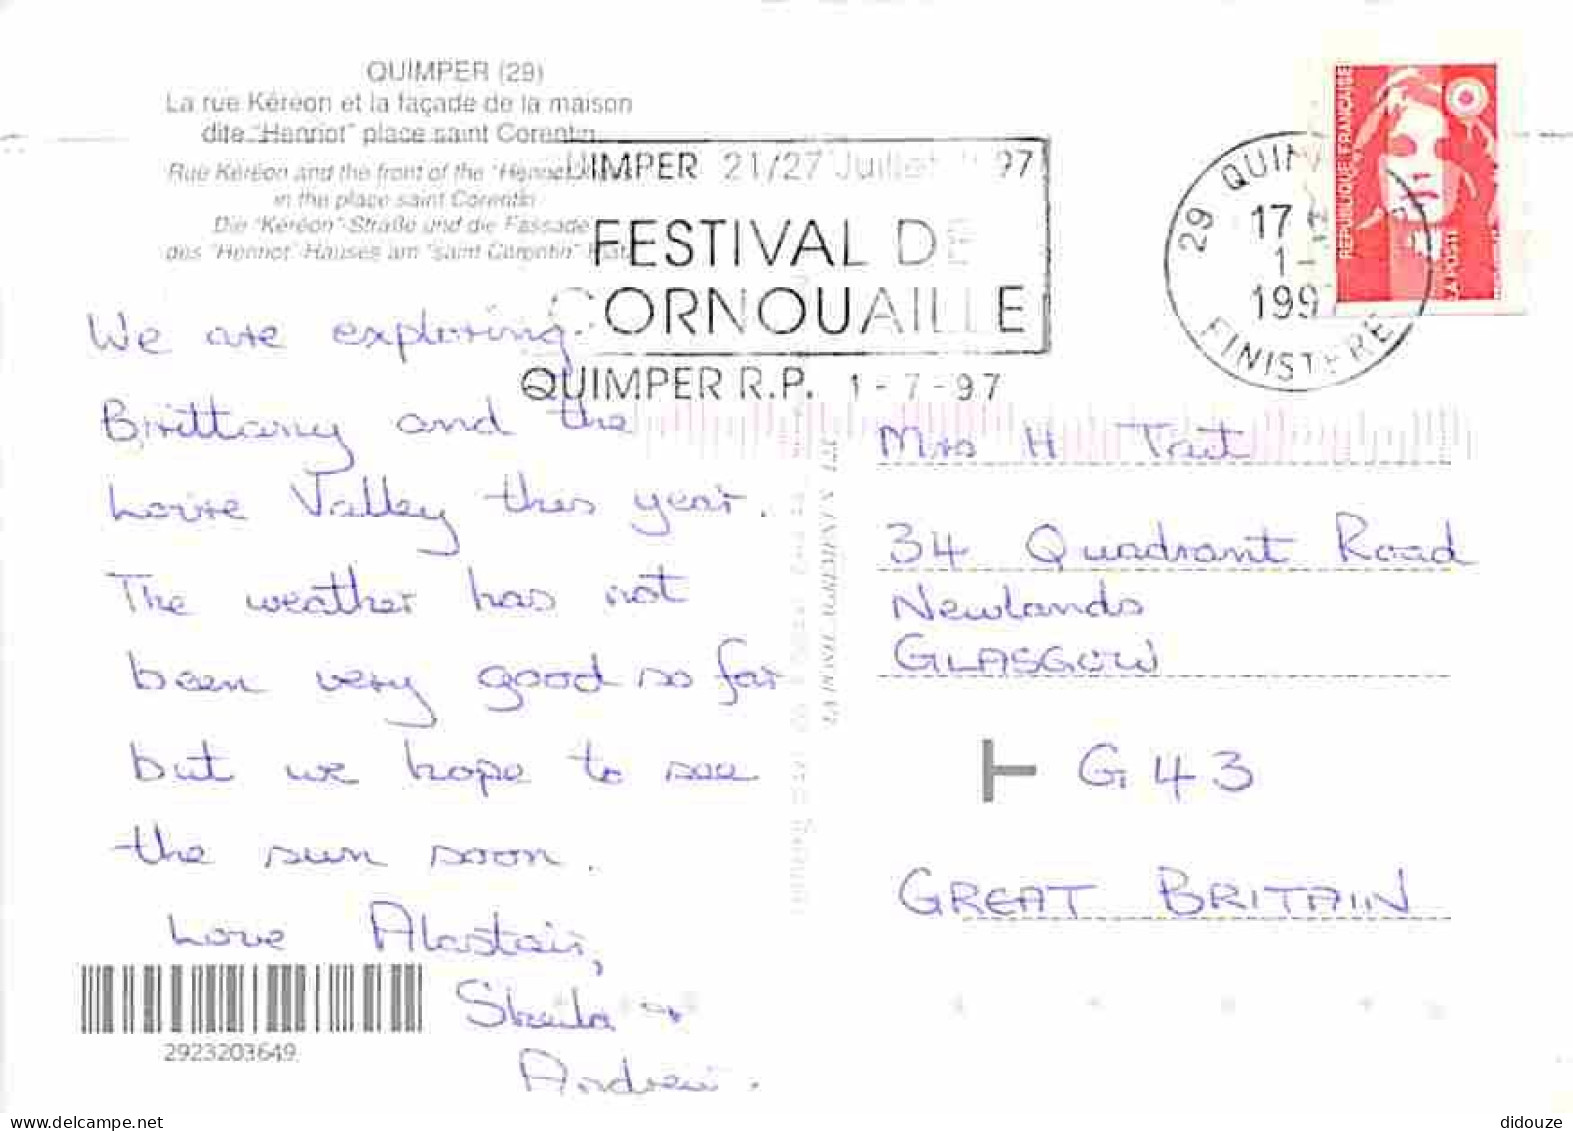 QUIMPER (29)
La rue Kéréon et la façade de la maison
dite "Henriot" place saint Corentin
Rue Kéréon and the front of the "Henriot"
in the place saint Corentin
Die "Kéréon"-Straße und die Fassade
des "Henriot"-Hauses am "saint Corentin"
UIMPER 21/27 Juillet 1997
FESTIVAL DE
CORNOUAILLE
QUIMPER R.P. 1-7-97
29 QUIMPER
17 H
1-7
1997
FINISTERE
REPUBLIQUE FRANÇAISE
LA POSTE
We are exploring
Brittany and the
Loire Valley this year.
The weather has not
been very good so far
but we hope to see
the sun soon.
Love Alastair,
Sheila +
Andrew.
Mrs H Tait
34 Quadrant Road
Newlands
GLASGOW
G43
GREAT BRITAIN
2923203649
delcampe.net
didouze